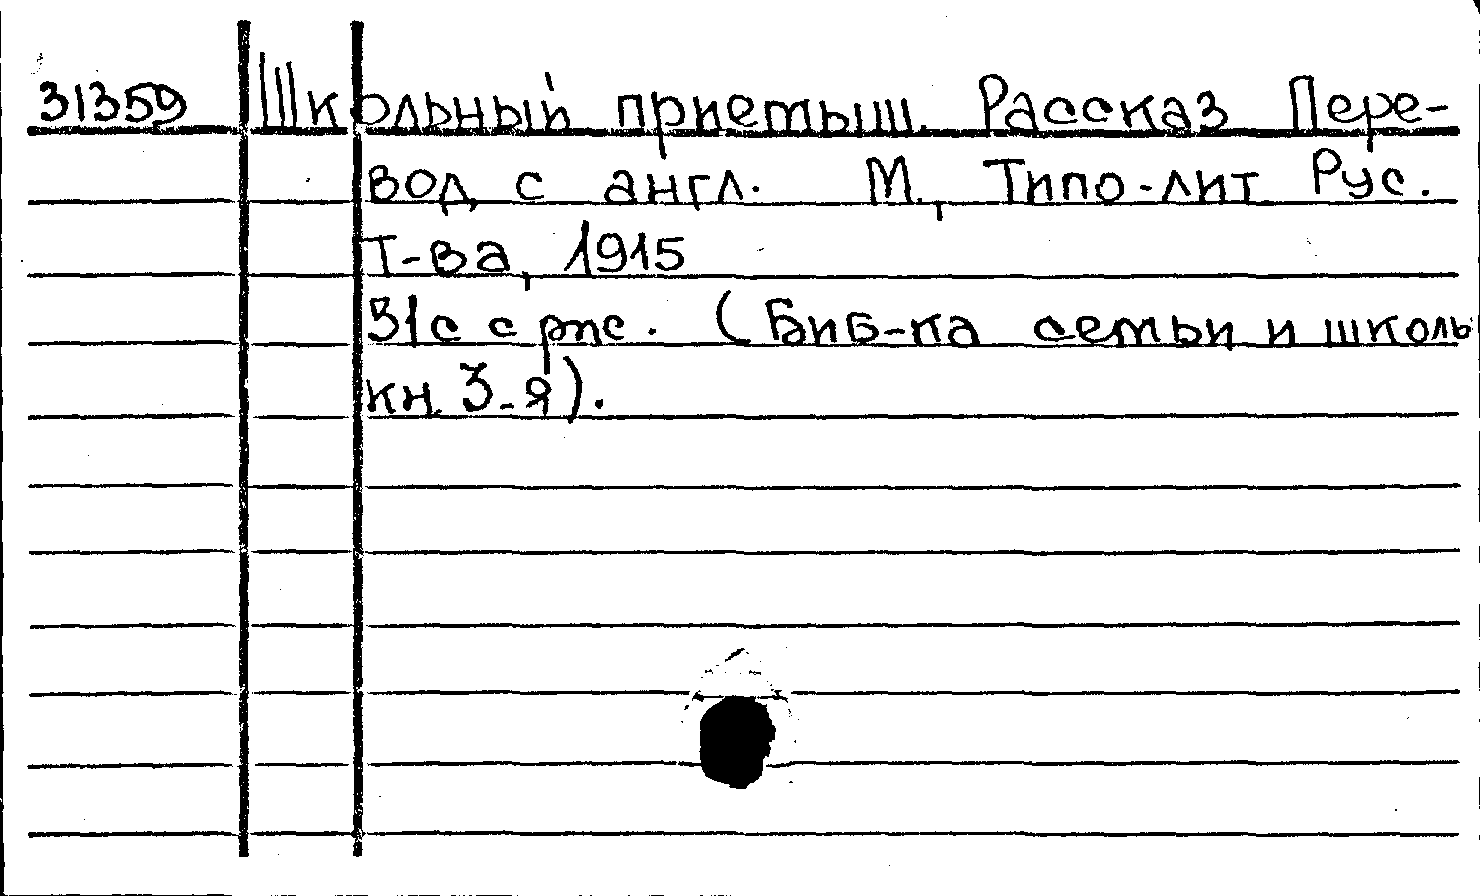 31359 Школьный приемыш. Рассказ Пере-
вод с англ. М., Типо-лит Рус.
Т-ва, 1915
31с с рис. (Биб-ка семьи и школы
кн. 3-я).